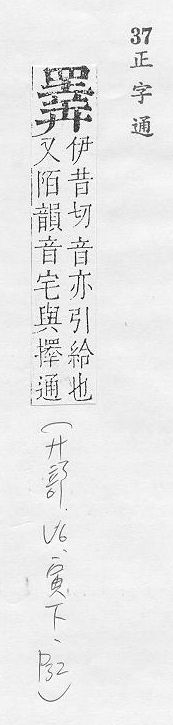 37正字通
睪
伊昔切音亦引給也
又陌韻音宅與擇通
(廾部.V6、寅下、P32)